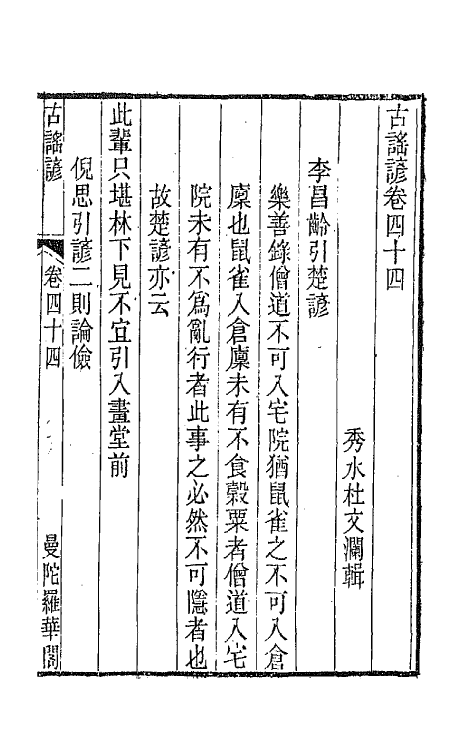 古謠諺卷四十四
秀水杜文瀾輯
李昌齡引楚諺
樂善錄僧道不可入宅院猶鼠雀之不可入倉
廩也鼠雀入倉廩未有不食榖粟者僧道入宅
院未有不爲亂行者此事之必然不可隱者也
故楚諺亦云
此輩只堪林下見不宜引入畫堂前
倪思引諺二則論儉
古謠諺
卷四十四
曼陀羅華閣